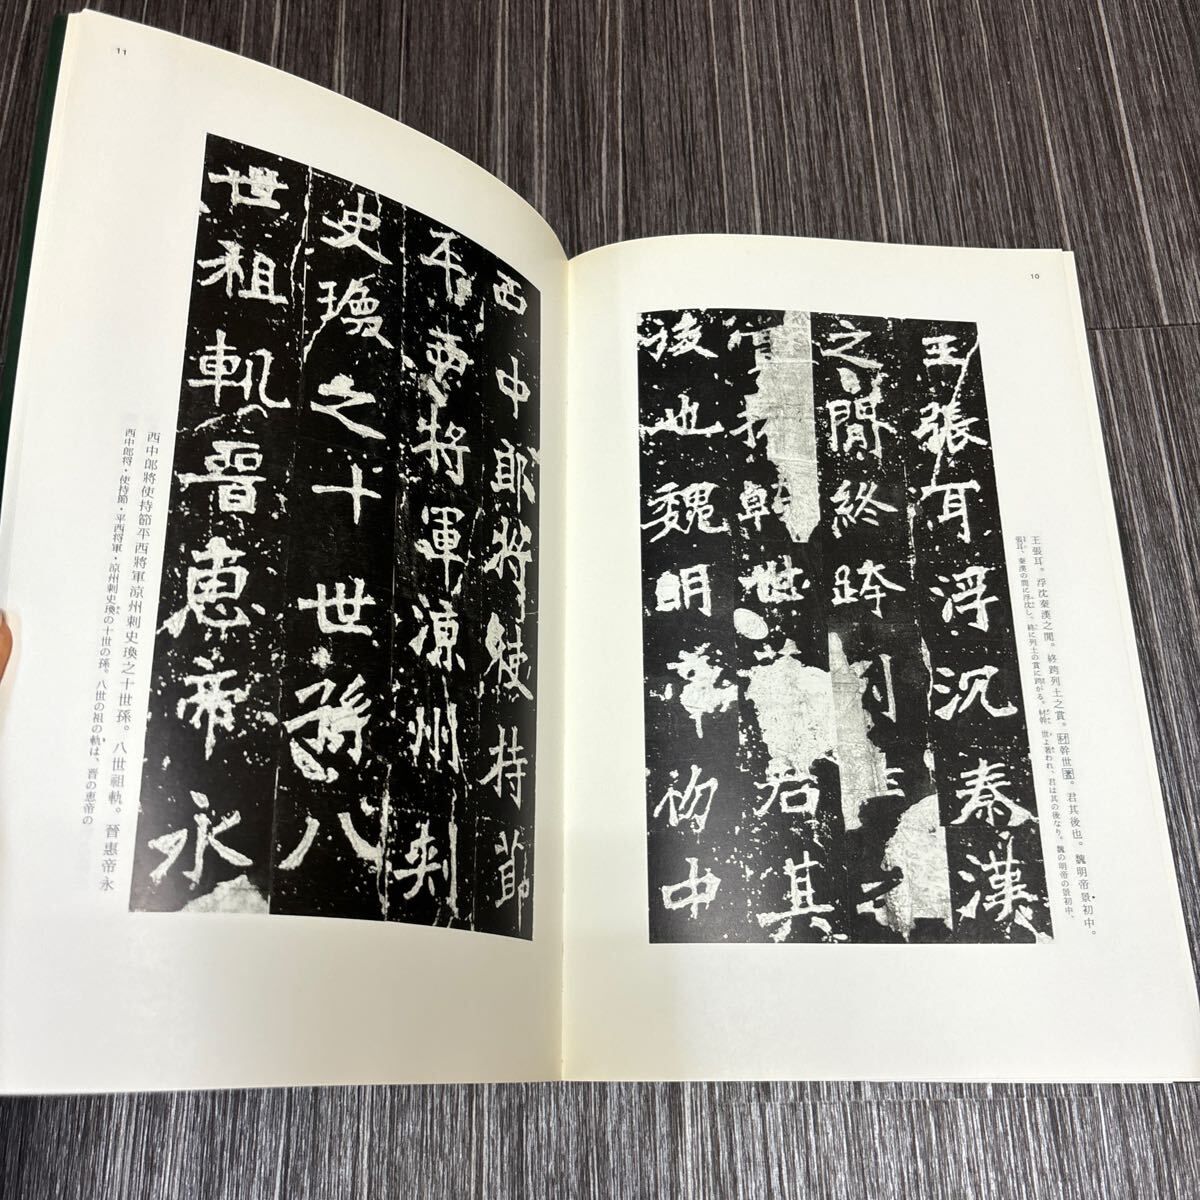 10
王張耳。浮沈秦漢之閒。終跨列土之賞。材幹世著。君其後也。魏明帝景初中。
張耳、秦漢の間に浮沈し、終に列土の賞に跨がる。材幹、世よ著われ、君は其の後なり。魏の明帝の景初中、
王張耳浮沉秦漢
之閒終跨列土之
賞材幹世著君其
後也魏明帝初中
11
西中郎將使持節
平西將軍涼州刾
史瑍之十世孫八
世祖軌晉惠帝永
西中郎將使持節平西將軍涼州刺史瑍之十世孫。八世祖軌。晉惠帝永
西中郎将・使持節・平西将軍・涼州刺史瑍の十世の孫。八世の祖の軌は、晋の恵帝の